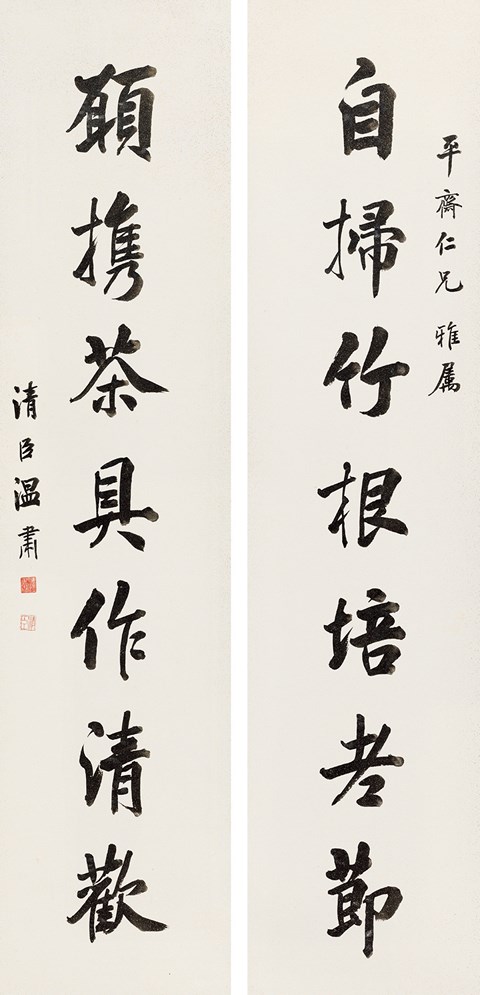 平齋仁兄雅属
自掃竹根培老節
願攜茶具作清歡
清臣温肅